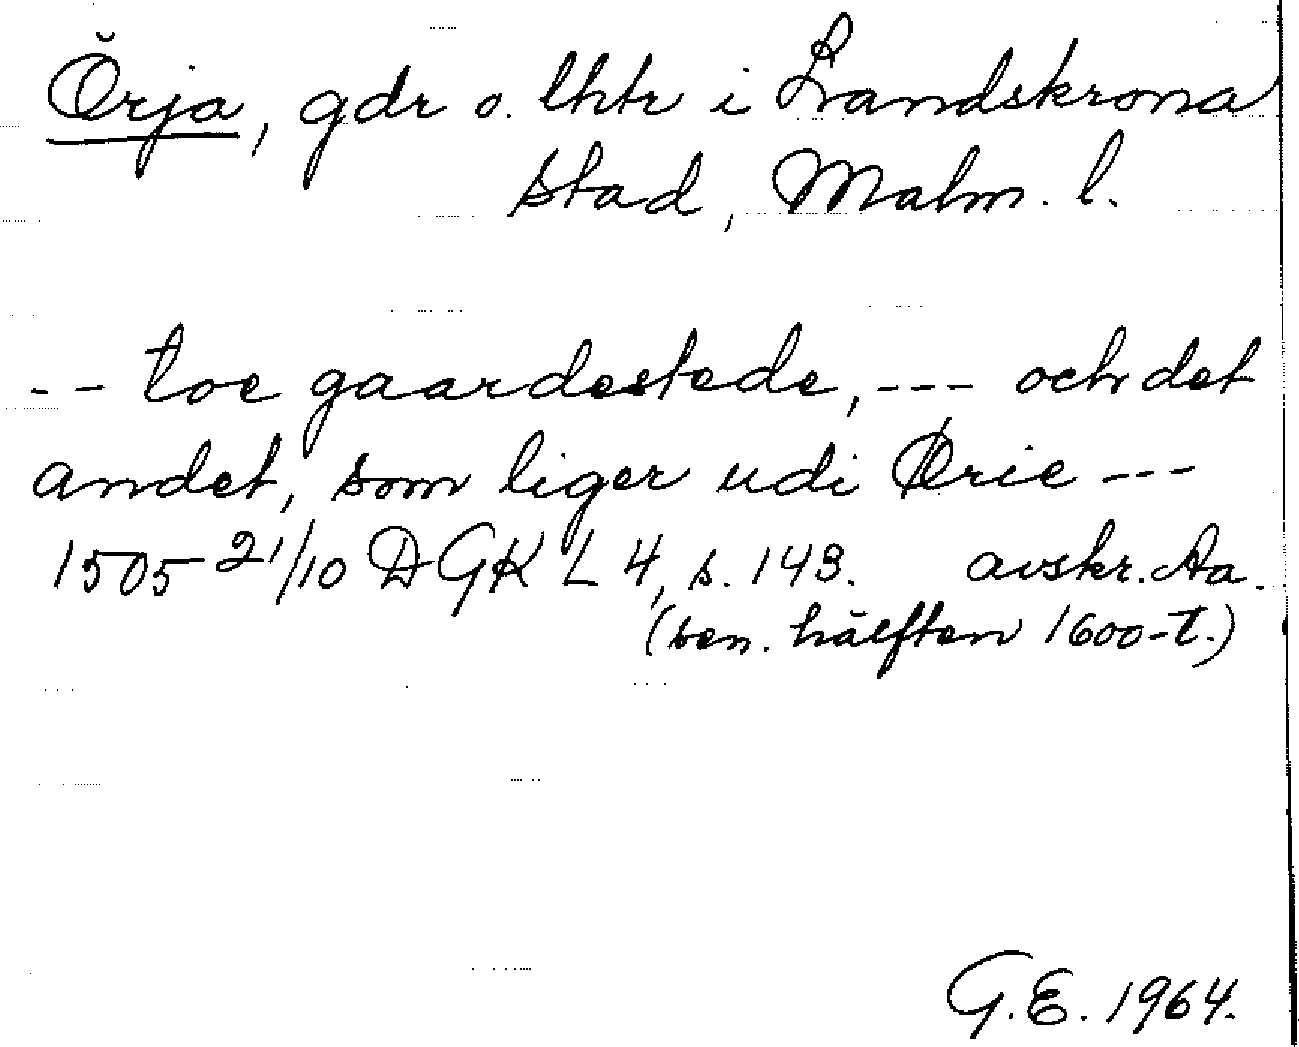 Örja, gdr o. lhtr i Landskrona
stad, Malm. l.
-- toe gaardestede, --- och det
andet, som liger udi Ørie ---
1505 21/10 DGK L 4, s. 143. avskr. Aa.
(sen. hälften 1600-t.)
G.E. 1964.